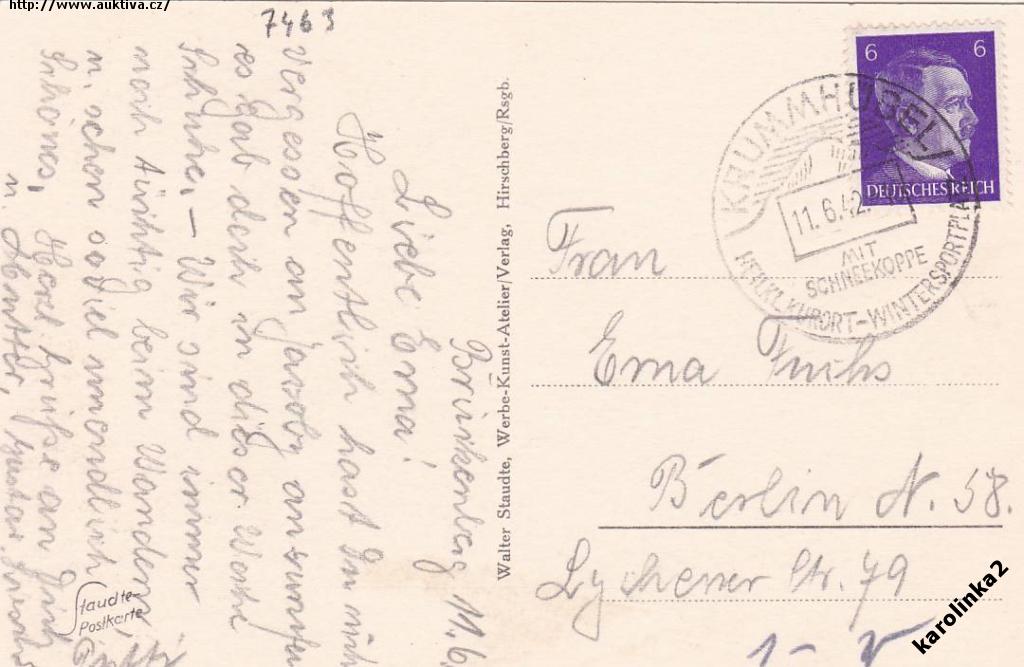 http://www.auktiva.cz/
7463
Brückenberg 11.6.
Liebe Erna!
Hoffentlich hast Du nicht
vergessen am Jacoby anzurufen
es gab doch in dieser Woche
Schuhe. – Wir sind immer
noch tüchtig beim Wandern,
u. sehen so viel unendlich
Schönes. Herzl. Grüße an Dich
u. Mutter, Gustav
Staudte-
Postkarte
Walter Staudte, Werbe-Kunst-Atelier/Verlag, Hirschberg/Rsgb.
6 6
DEUTSCHES REICH
KRUMMHÜBEL
11.6.42.
MIT
SCHNEEKOPPE
HEILKL. KURORT-WINTERSPORTPLATZ
Frau
Erna Fuchs
Berlin N. 58.
Lychener Str. 79
karolinka2